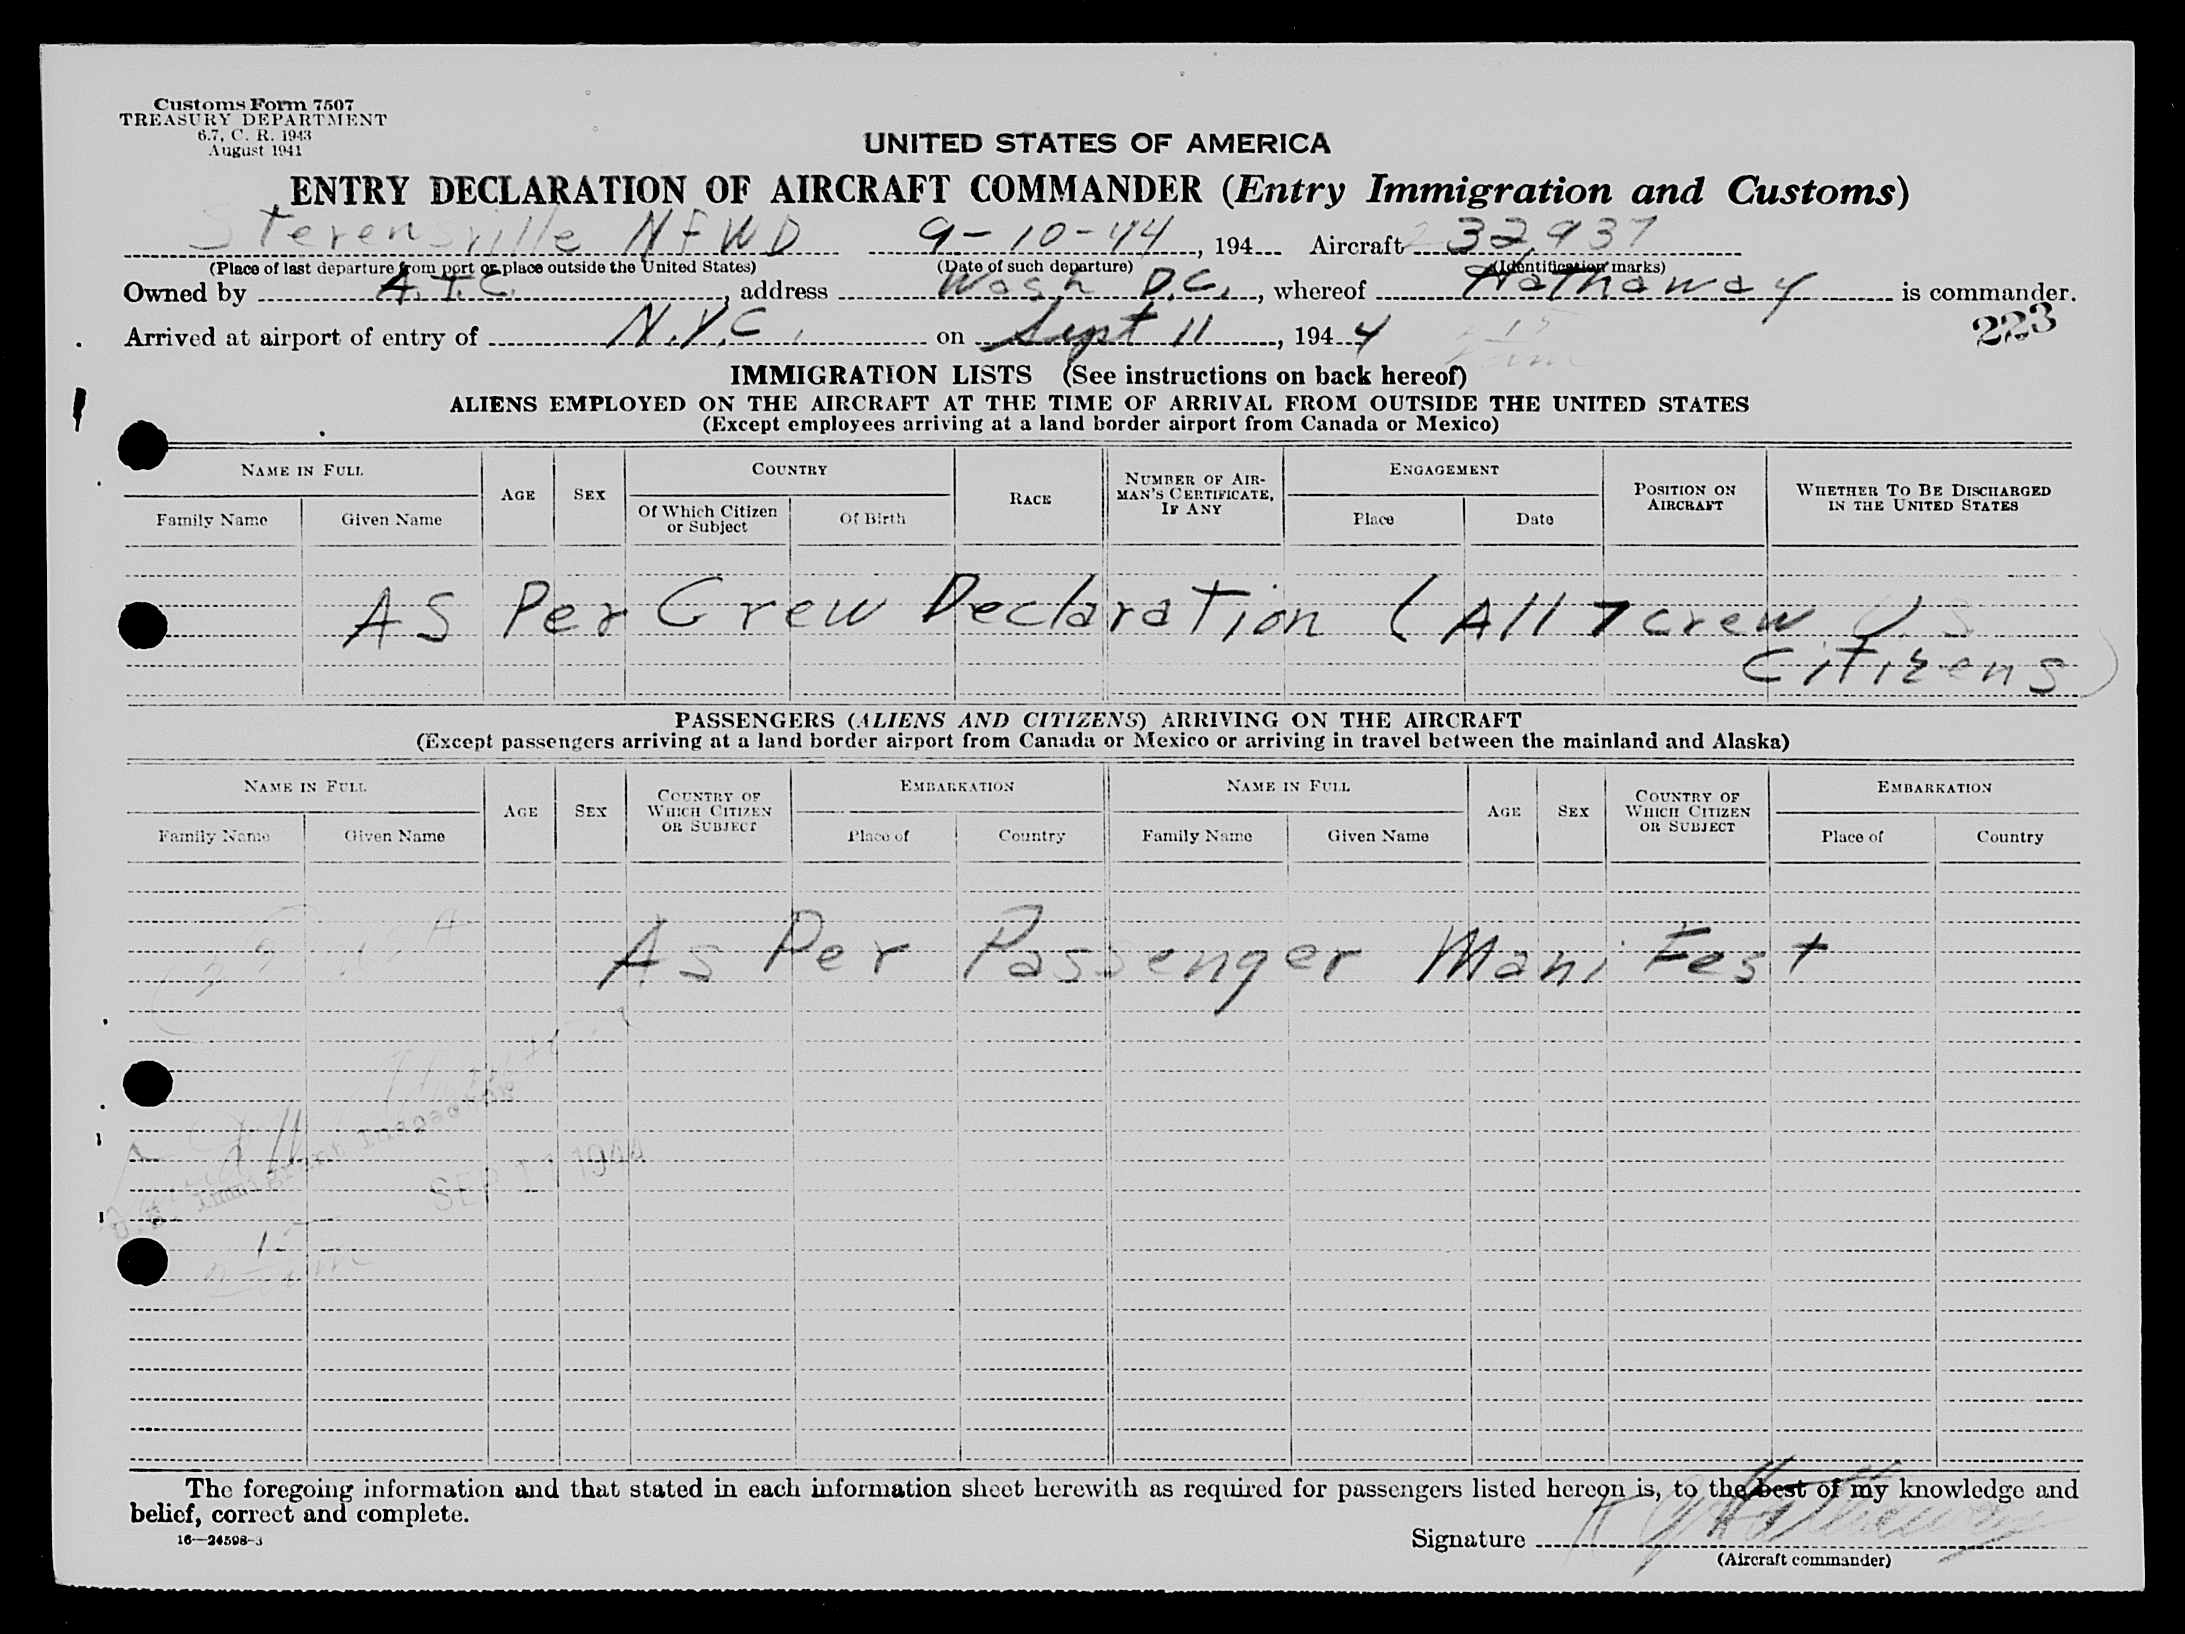 Customs Form 7507
TREASURY DEPARTMENT
6.7, C. R. 1943
August 1941
UNITED STATES OF AMERICA
ENTRY DECLARATION OF AIRCRAFT COMMANDER (Entry Immigration and Customs)
Sterensville NFWD 9-10-44, 194 Aircraft 232937
(Place of last departure from port or place outside the United States) (Date of such departure) (Identification marks)
Owned by A.T.C., address Wash D.C., whereof Hathaway is commander.
223
Arrived at airport of entry of N.Y.C. on Sept 11, 1944
IMMIGRATION LISTS (See instructions on back hereof)
ALIENS EMPLOYED ON THE AIRCRAFT AT THE TIME OF ARRIVAL FROM OUTSIDE THE UNITED STATES
(Except employees arriving at a land border airport from Canada or Mexico)
NAME IN FULL AGE SEX COUNTRY RACE NUMBER OF AIRMAN'S CERTIFICATE, IF ANY ENGAGEMENT POSITION ON AIRCRAFT WHETHER TO BE DISCHARGED IN THE UNITED STATES
Family Name Given Name Of Which Citizen or Subject Of Birth Place Date
AS Per Crew Declaration (All 7 crew U.S
Citizens)
PASSENGERS (ALIENS AND CITIZENS) ARRIVING ON THE AIRCRAFT
(Except passengers arriving at a land border airport from Canada or Mexico or arriving in travel between the mainland and Alaska)
NAME IN FULL AGE SEX COUNTRY OF WHICH CITIZEN OR SUBJECT EMBARKATION NAME IN FULL AGE SEX COUNTRY OF WHICH CITIZEN OR SUBJECT EMBARKATION
Family Name Given Name Place of Country Family Name Given Name Place of Country
As Per Passenger Mani Fest
U.S. Immigrant Inspector
SEP 11 1944
The foregoing information and that stated in each information sheet herewith as required for passengers listed hereon is, to the best of my knowledge and
belief, correct and complete.
16—24598-3
Signature R G Hathaway
(Aircraft commander)